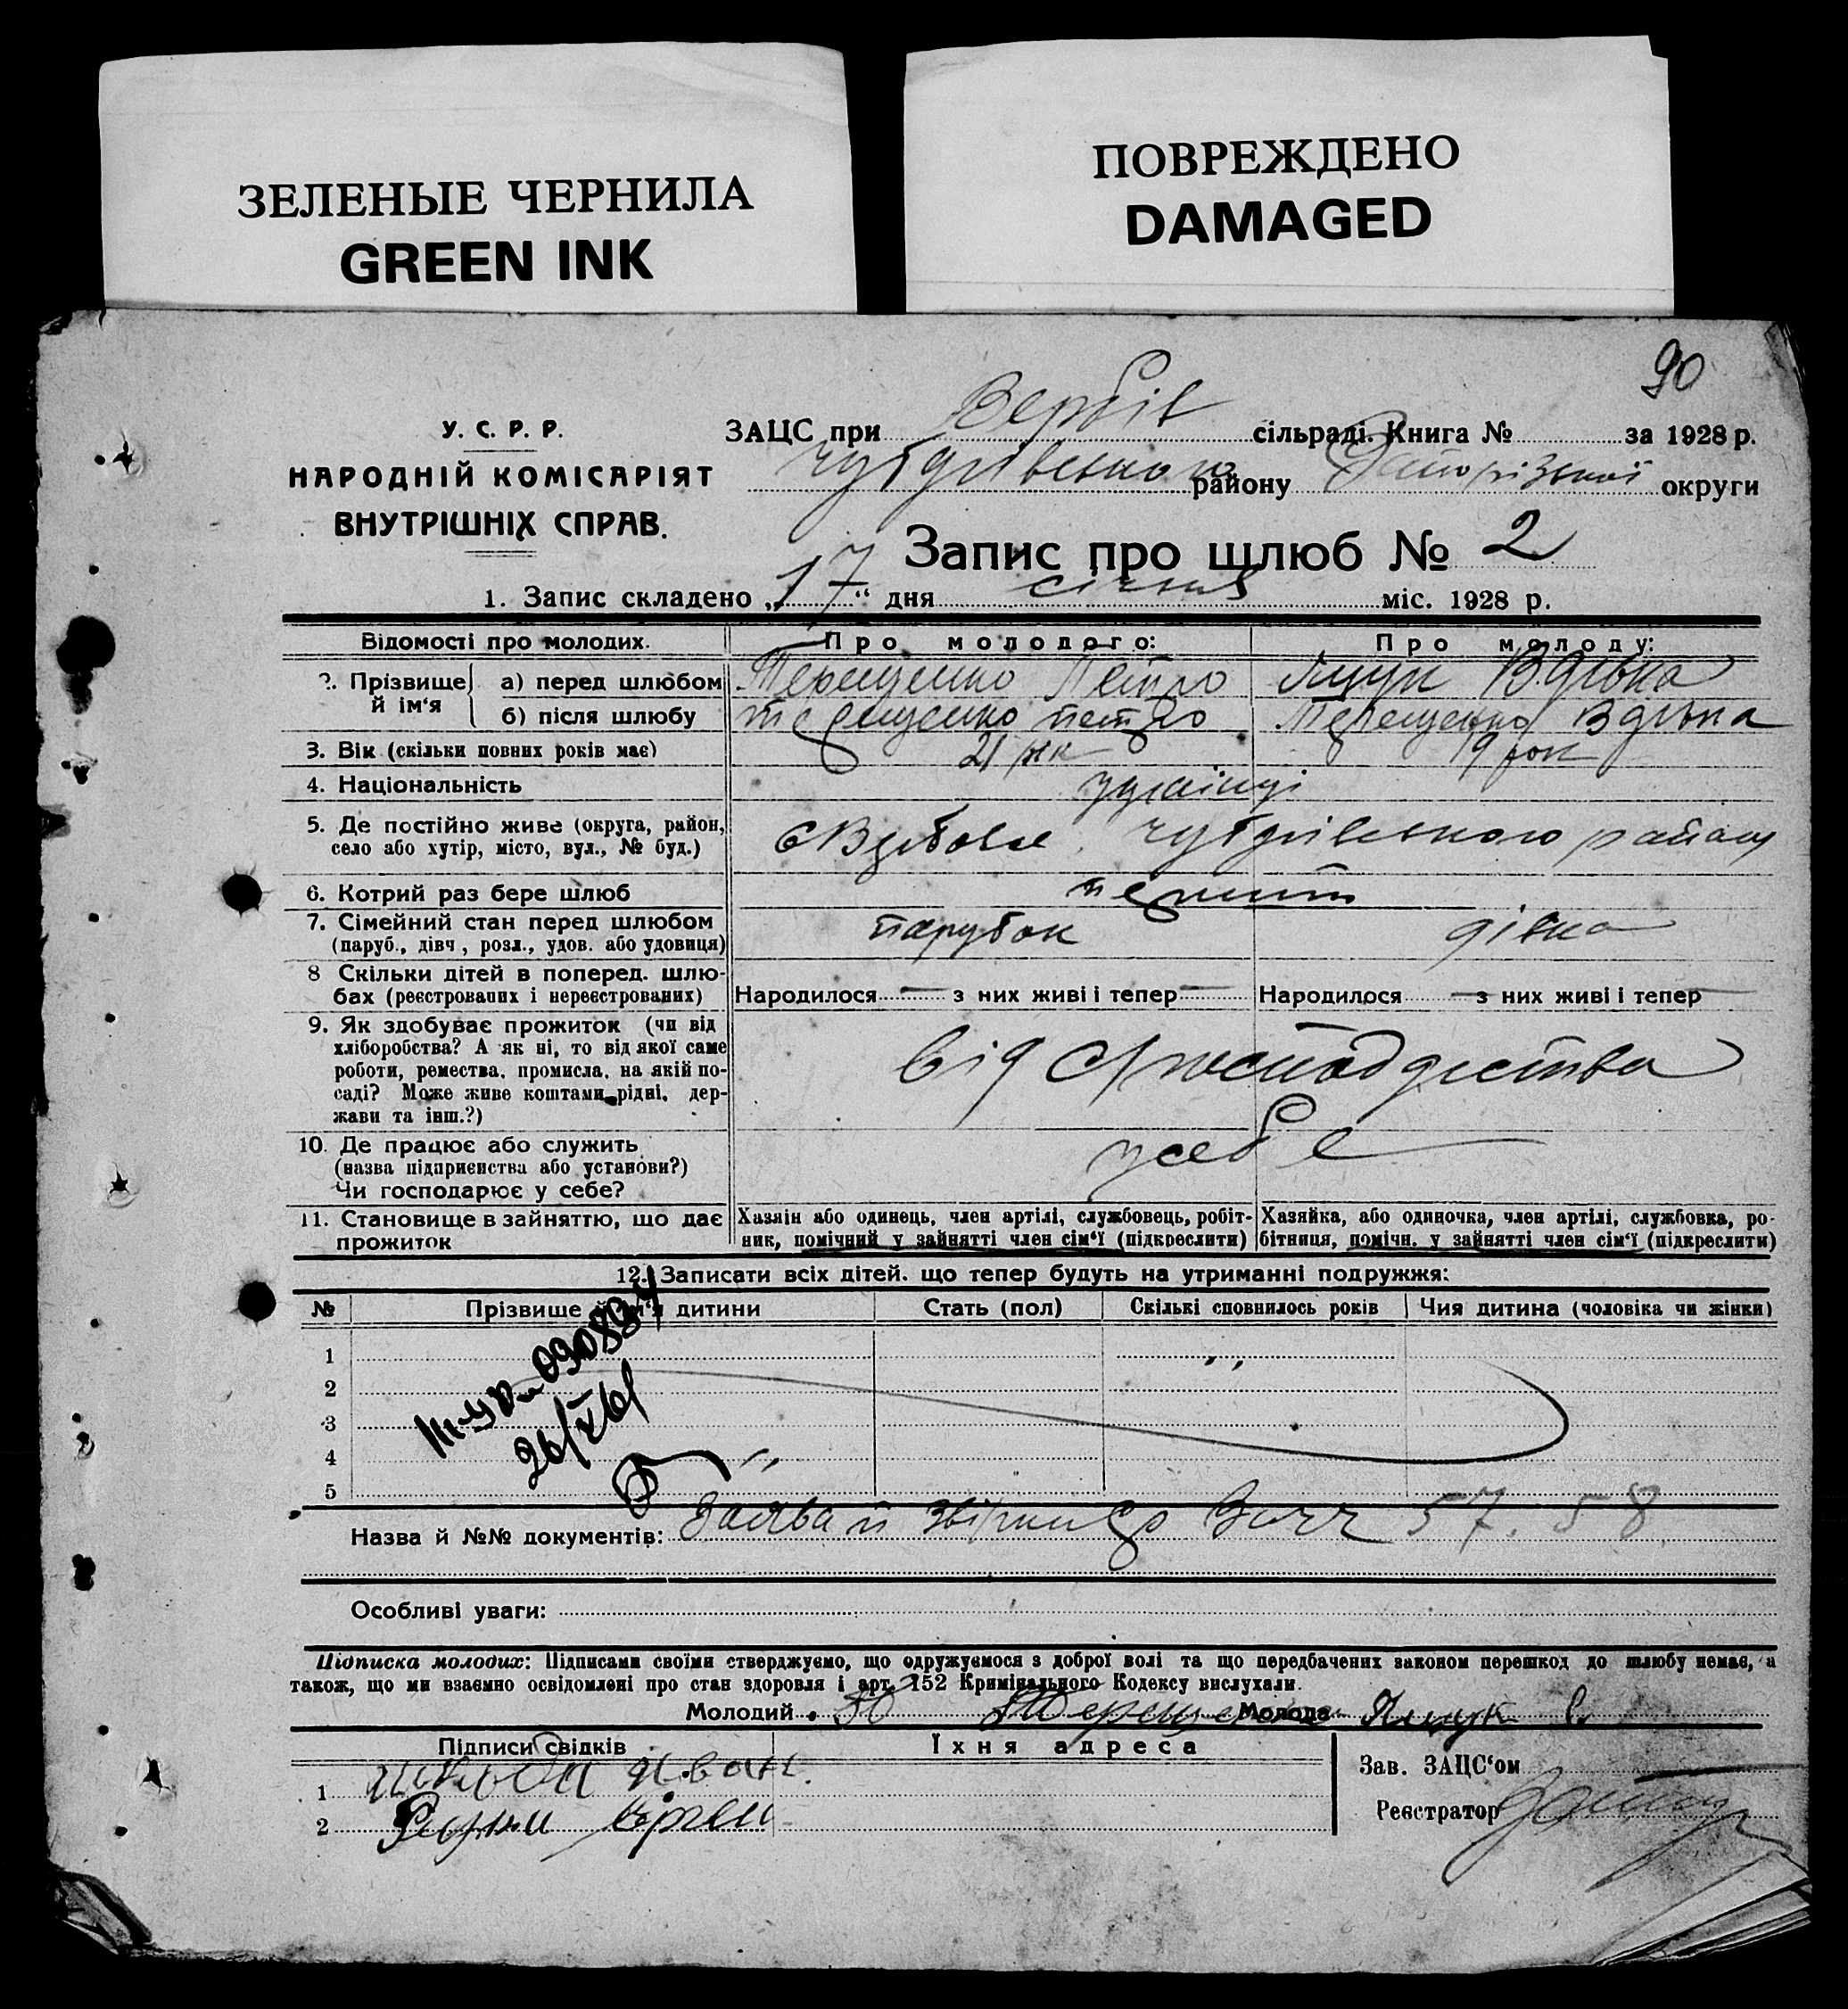 ЗЕЛЕНЫЕ ЧЕРНИЛА
GREEN INK
ПОВРЕЖДЕНО
DAMAGED
90
У. С. Р. Р.
НАРОДНІЙ КОМІСАРІЯТ
ВНУТРІШНІХ СПРАВ.
ЗАЦС при Вербів сільраді. Книга № за 1928 р.
району Запорізької округи
Запис про шлюб № 2
1. Запис складено „17“ дня січня міс. 1928 р.
Відомості про молодих. Про молодого: Про молоду:
2. Прізвище й ім‘я а) перед шлюбом Терещенко Петро Ящук Вдівка
б) після шлюбу Терещенко петро Терещенко Вдівка
3. Вік (скільки повних років має) 21 рік 19 рок
4. Національність
5. Де постійно живе (округа, район,
село або хутір, місто, вул., № буд.) району
6. Котрий раз бере шлюб перший
7. Сімейний стан перед шлюбом
(паруб., дівч., розл., удов. або удовиця) парубок дівка
8 Скільки дітей в поперед. шлю-
бах (реєстрованих і нереєстрованих) Народилося — з них живі і тепер — Народилося — з них живі і тепер —
9. Як здобуває прожиток (чи від
хліборобства? А як ні, то від якої саме
роботи, ремества, промисла, на якій по-
саді? Може живе коштами рідні, дер-
жави та інш.?) від с/господарства
10. Де працює або служить
(назва підприємства або установи?)
Чи господарює у себе? у себе
11. Становище в зайняттю, що дає
прожиток
Хазяїн або одинець, член артілі, службовець, робіт-
ник, помічний у зайнятті член сім‘ї (підкреслити)
Хазяйка, або одиночка, член артілі, службовка, ро-
бітниця, помічн. у зайнятті член сім‘ї (підкреслити)
12. Записати всіх дітей, що тепер будуть на утриманні подружжя:
№ Прізвище й ім‘я дитини Стать (пол) Скількі сповнилось років Чия дитина (чоловіка чи жінки)
1
2
3
4
5
Назва й №№ документів: Заява й 57. 58
Особливі уваги:
Підписка молодих: Підписами своїми стверджуємо, що одружуємося з доброї волі та що передбачених законом перешкод до шлюбу немає, а
також, що ми взаємно освідомлені про стан здоровля і арт. 152 Кримінального Кодексу вислухали.
Молодий Терещенко Молода Ящук
Підписи свідків Їхня адреса
1
2
Зав. ЗАЦС‘ом
Реєстратор